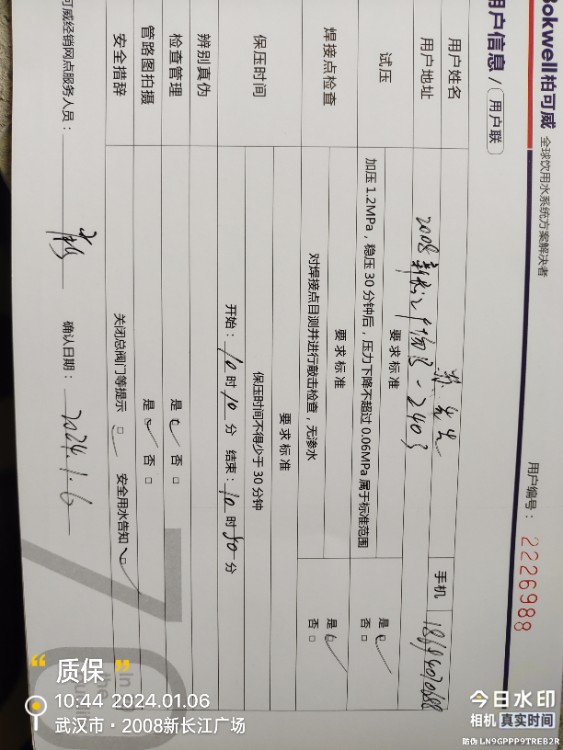 Bokwell柏可威 全球饮用水系统方案解决者
用户编号：2226988
用户信息/用户联
用户姓名
手机
用户地址 2008新长江广场 - 2403
试压 要求标准
加压 1.2MPa，稳压 30 分钟后，压力下降不超过 0.06MPa 属于标准范围
是 否
焊接点检查 要求标准
对焊接点目测并进行敲击检查，无渗水
是 否
保压时间 要求标准
保压时间不得少于 30 分钟
开始：10 时 10 分 结束：10 时 40 分
辨别真伪
检查管理 是 否
管路图拍摄 是 否
安全措辞 关闭总阀门等提示 安全用水告知
可威经销网点服务人员：
确认日期：2024.1.6
“质保”
10:44 2024.01.06
武汉市·2008新长江广场
今日水印
相机 真实时间
防伪 LN9GPPP9TREB2R